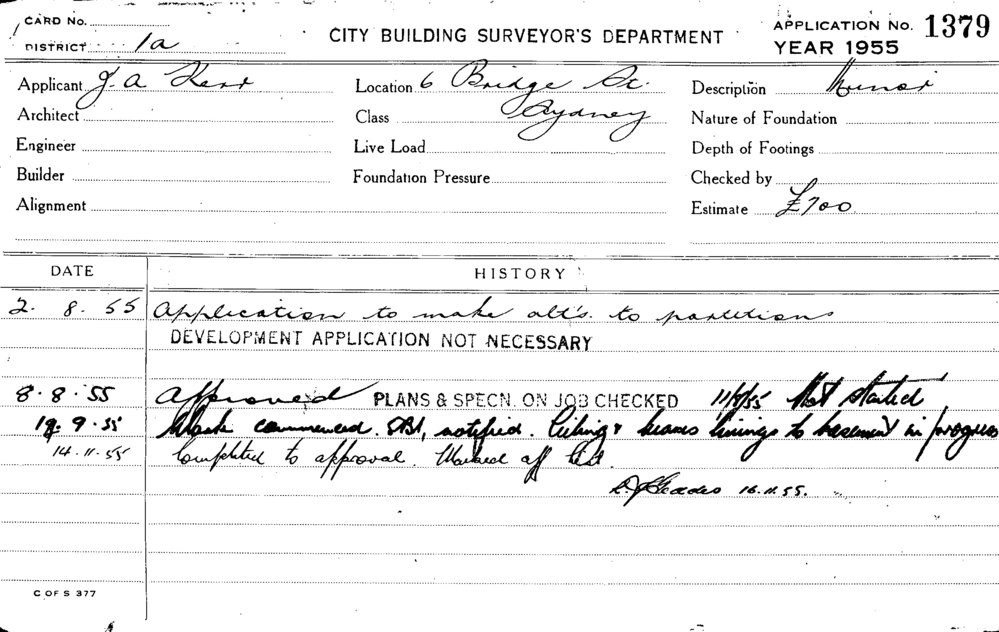 CARD No.
DISTRICT 1a
CITY BUILDING SURVEYOR'S DEPARTMENT
APPLICATION No. 1379
YEAR 1955
Applicant J. A Kerr
Location 6 Bridge St. Sydney
Description Minor
Architect
Class
Nature of Foundation
Engineer
Live Load
Depth of Footings
Builder
Foundation Pressure
Checked by
Alignment
Estimate £700
DATE
HISTORY
2. 8. 55 Application to make alt's. to partitions
DEVELOPMENT APPLICATION NOT NECESSARY
8. 8. 55 Approved PLANS & SPECN. ON JOB CHECKED Not started
19. 9. 55 Work commenced. notified. Ceiling & beams linings to basement in progress
14. 11. 55 Completed to approval. Marked off list.
16. 11. 55.
C OF S 377